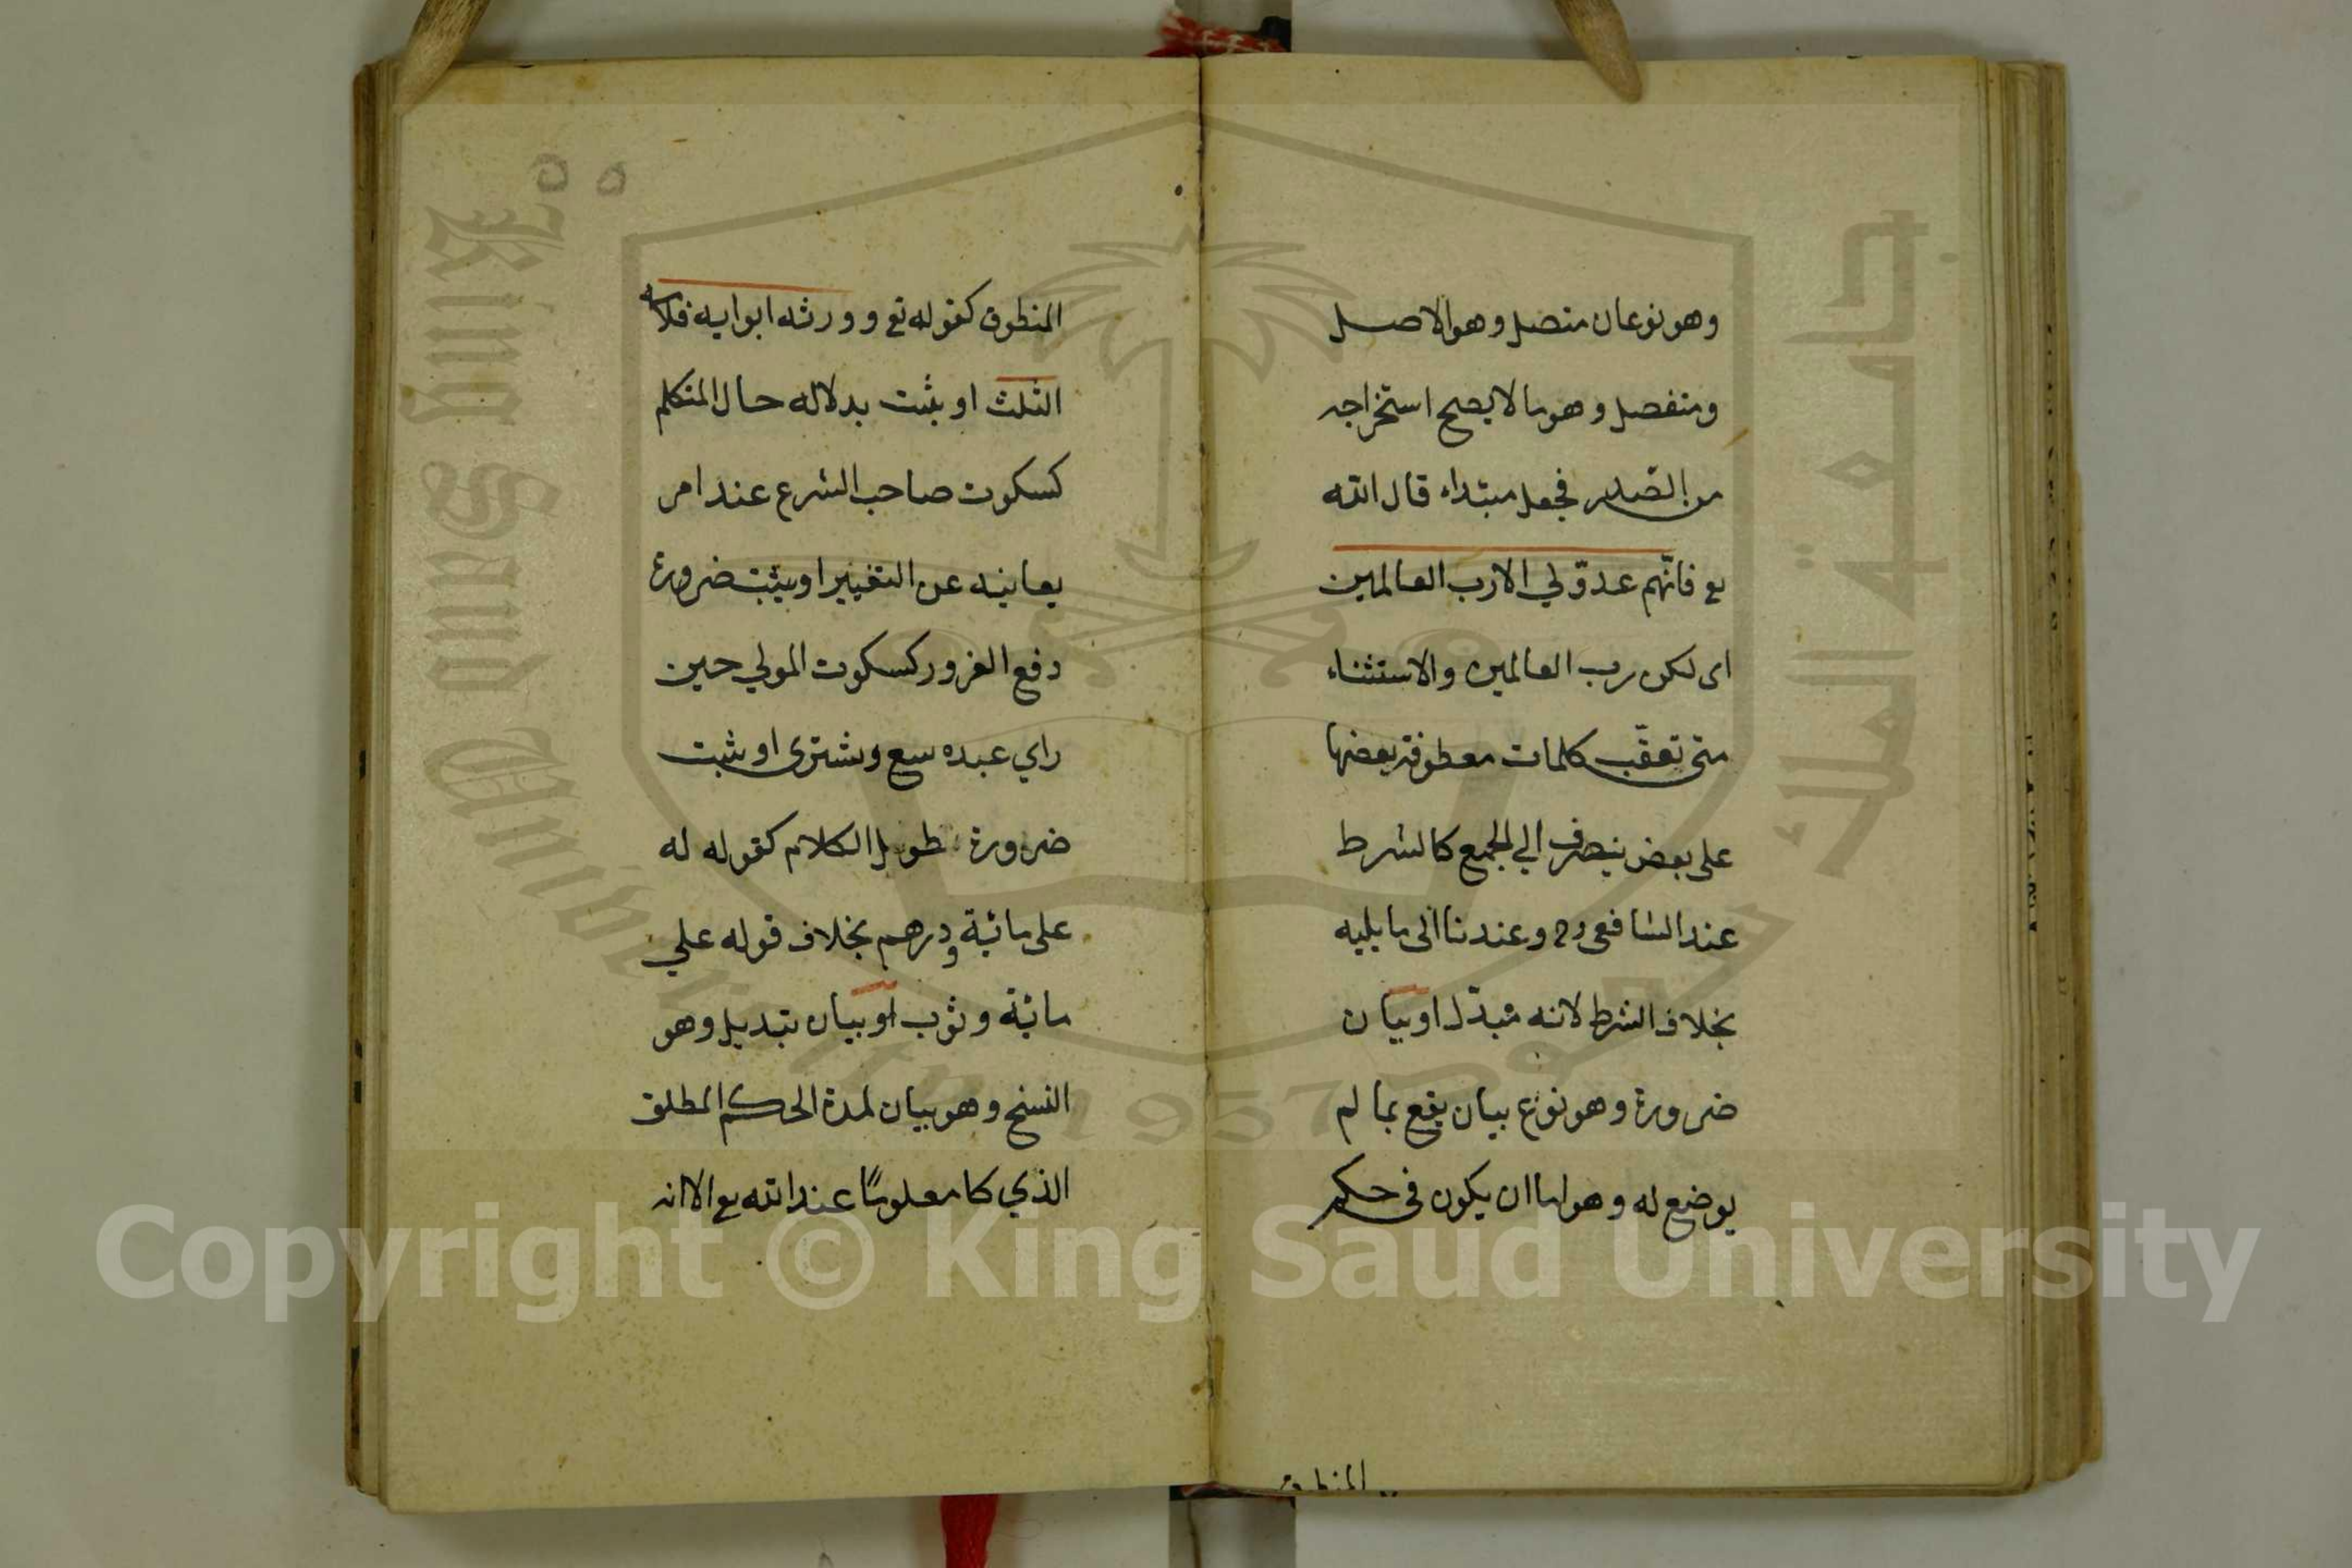 وهو نوعان متصل وهو الاصل
ومنفصل وهو ما لا يصح استخراجه
من الصّدر فجعل مبتداء قال الله
تع فانّهم عدوّ لي الا رب العالمين
اى لكن رب العالمين والاستثناء
متى تعقّب كلمات معطوفة بعضها
على بعض ينصرف الي الجميع كالشرط
عند الشافعى رح وعندنا الى ما يليه
بخلاف الشرط لانه مبدّل او بيان
ضرورة وهو نوع بيان يقع بما لم
يوضع له وهو اما ان يكون فى حكم
المنطوق
٥٥
المنطوق كقوله تع وورثه ابواه فلامه
الثلث او يثبت بدلاله حال المتكلم
كسكوت صاحب الشرع عند امر
يعاينه عن التغيير او يثبت ضرورة
دفع الغرور كسكوت المولي حين
راي عبده يبيع ويشترى او يثبت
ضرورة طويل الكلام كقوله له
على مائية ودرهم بخلاف قوله علي
مائية وثوب او بيان تبديل وهو
النسخ وهو بيان لمدة الحكم المطلق
الذي كا معلومًا عند الله تع الا انه
جامعة الملك سعود
King Saud University
1957
Copyright © King Saud University